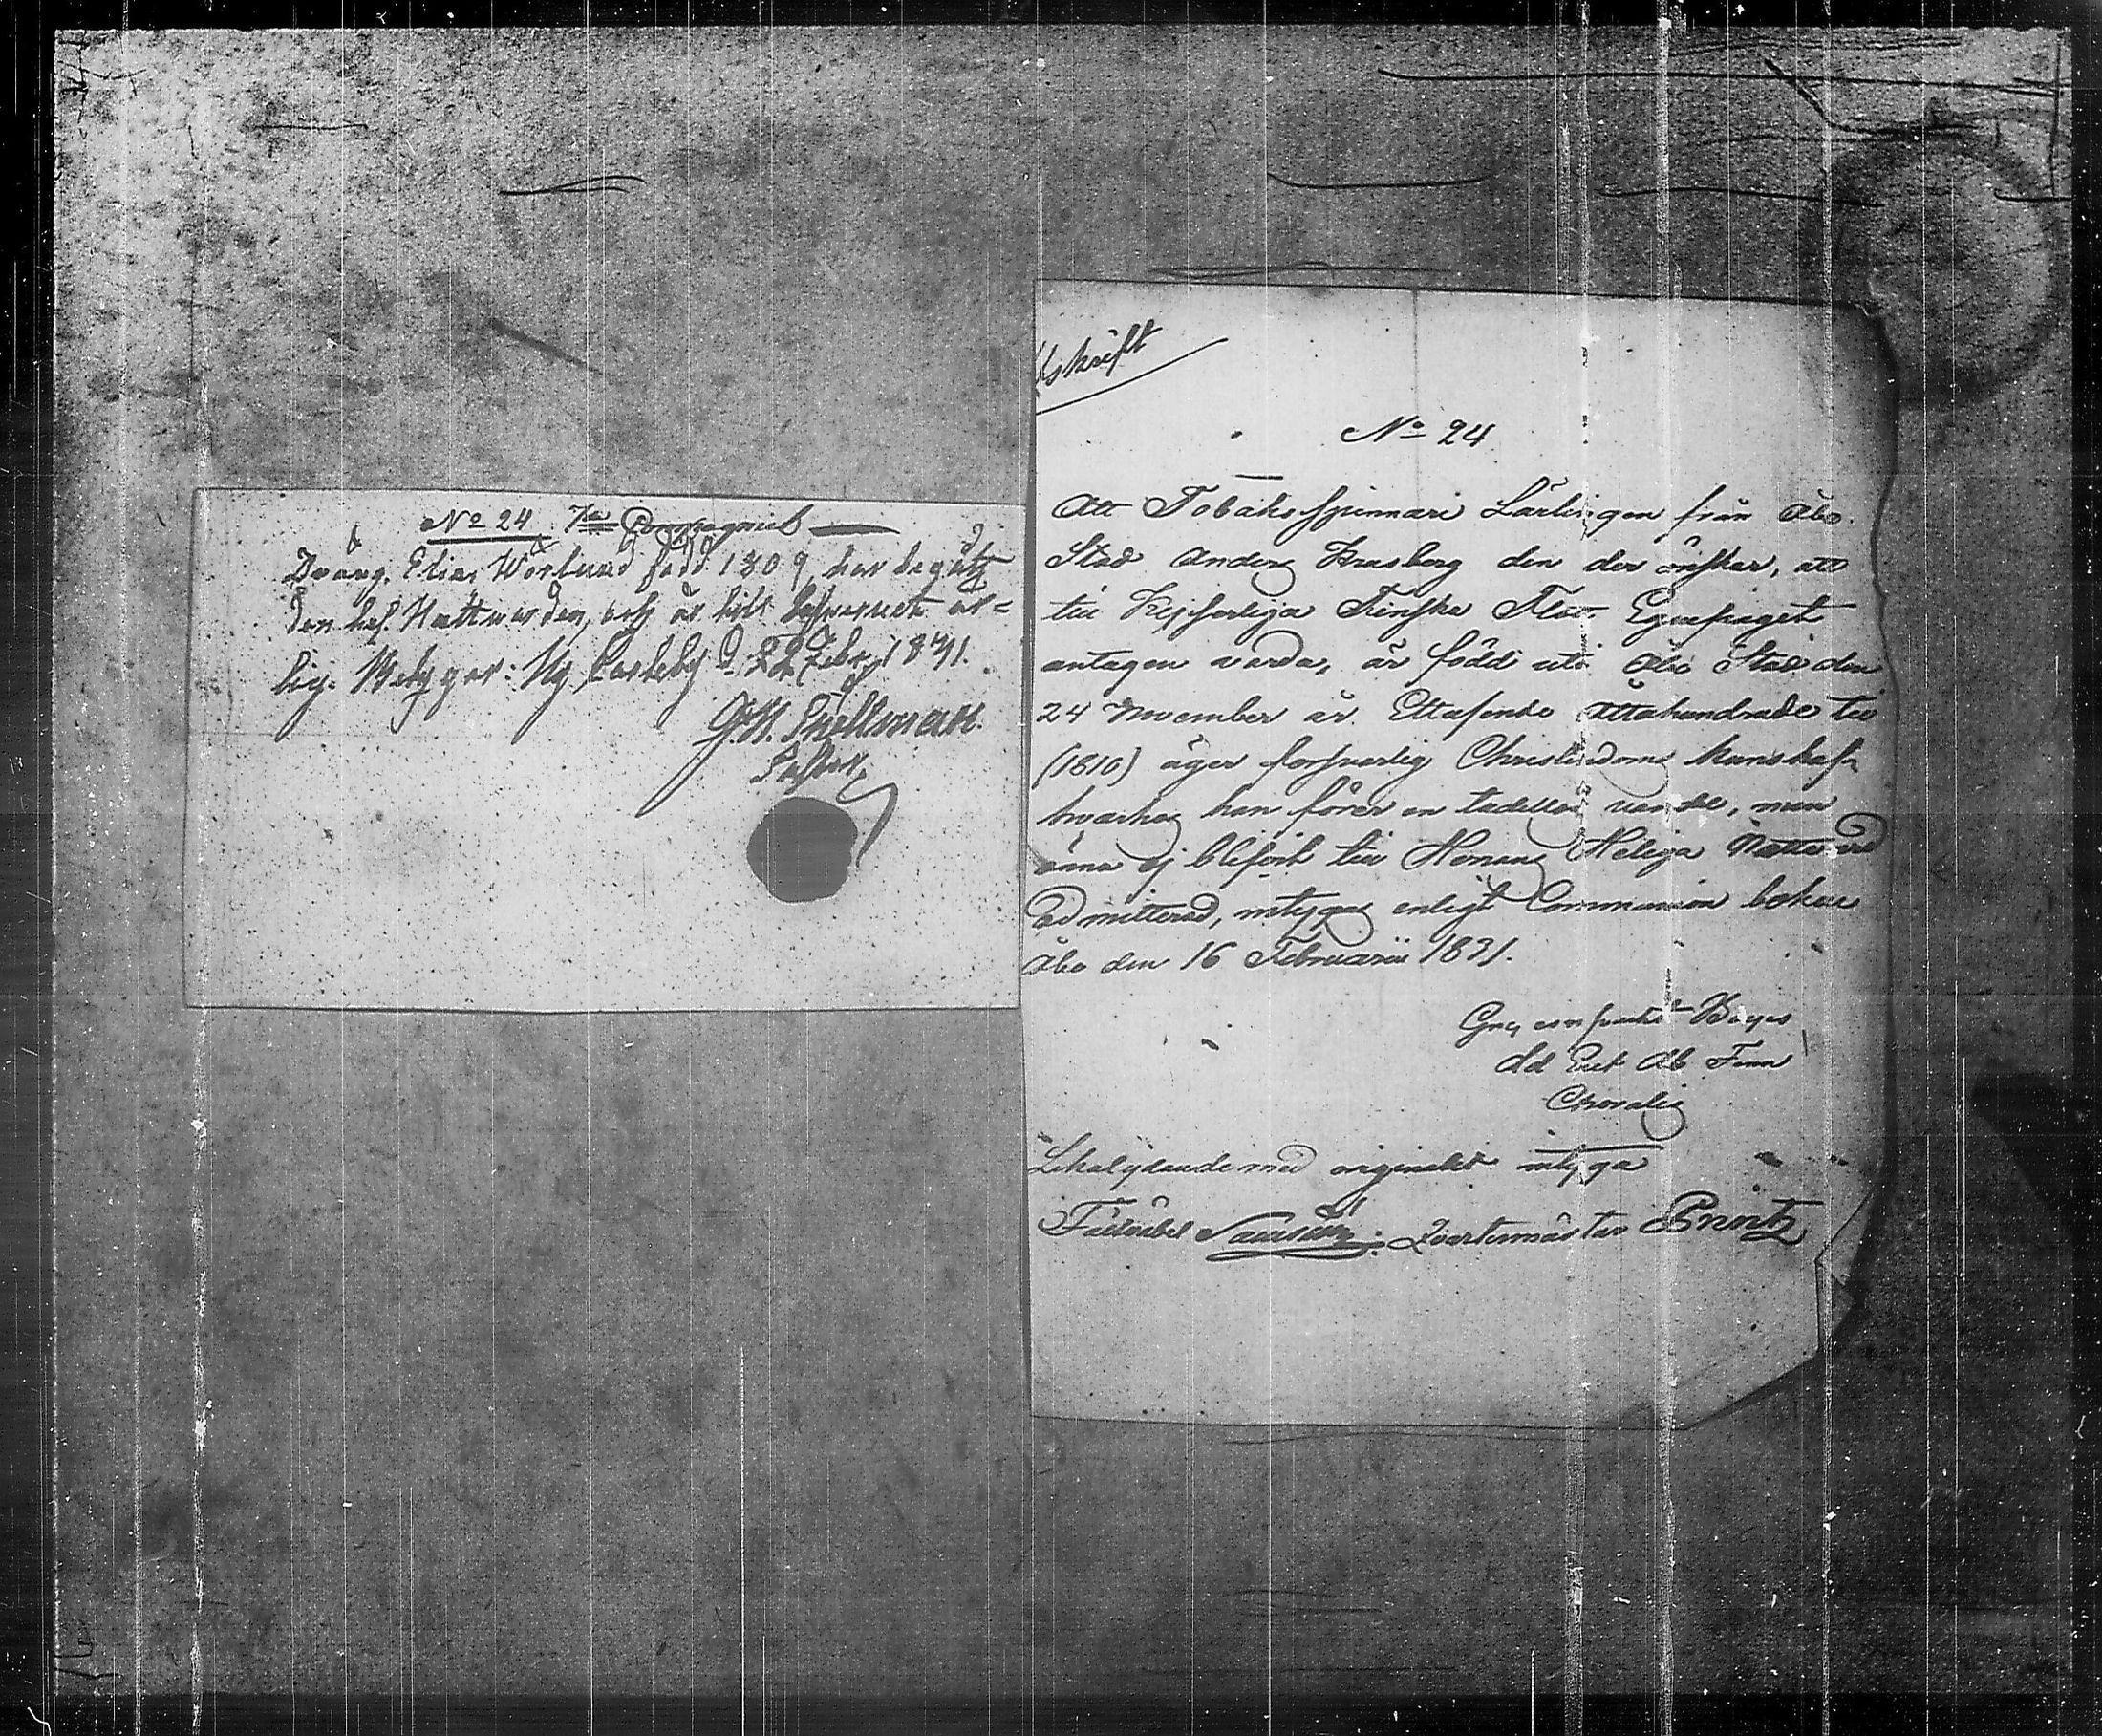 No 24 7de Compagniet
Dräng. Elias Wörlund född 1809, har begått
den hel. Nattvarden, och är till lefvernet är=
lig. Betygar: Ny Carleby d. 22 Febr. 1831.
G. H. Snellman.
Pastor
Afskrift
No 24
Att Tobaksspinnari Lärlingen från Åbo
Stad Anders Krusberg den der önskar, att
till Kejserliga Finska Flott Equipaget
antagen varda, är född uti Åbo Stad den
24 November år Ettusende åttahundrade tio
(1810) äger försvarlig Christendoms kunskap
hvarhos han fører en tadellös vandel, men
ännu ej blifvit till Herrans Heliga Nattvard
admitterad, intygas enligt Communion boken
Åbo den 16 Februarii 1831.
Ad Ecct Ab Fenn
Likalydande med originalet intyga
Fältväbel Qvartermästar Printz